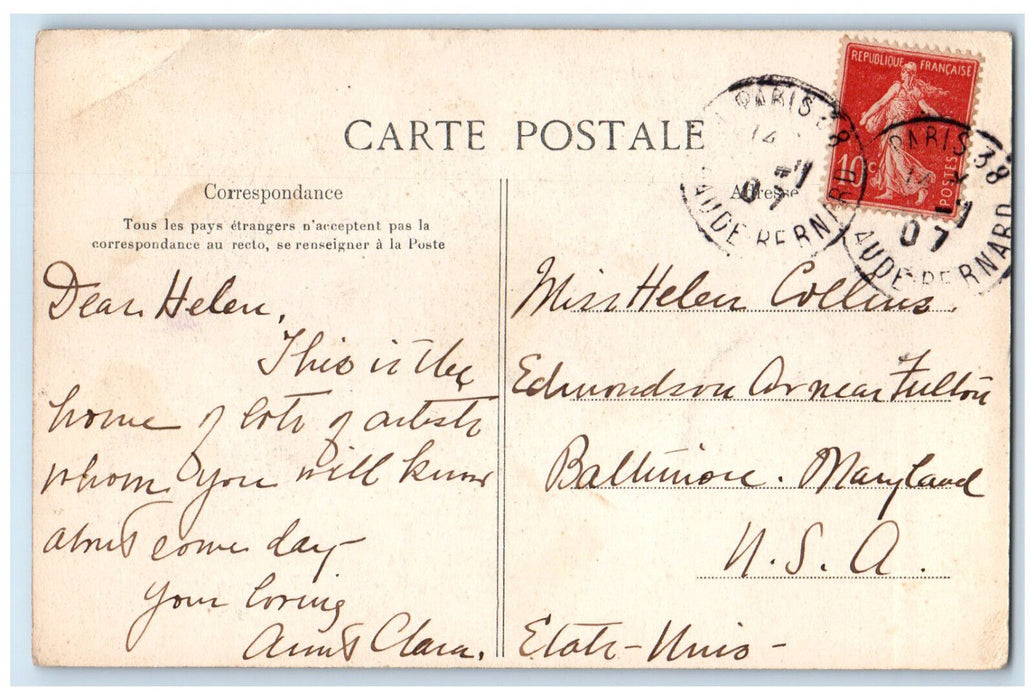 CARTE POSTALE
Correspondance
Tous les pays étrangers n'acceptent pas la
correspondance au recto, se renseigner à la Poste
Dear Helen,
This is the
home of lots of artists
whom you will know
about some day
Your loving
Aunt Clara.
Adresse
Miss Helen Collins.
Edmondson Av near Fulton
Baltimore. Maryland
U. S. A.
Etats-Unis-
REPUBLIQUE FRANÇAISE
10c
POSTES
PARIS 38
14
07
AUDE-BERNARD
PARIS 38
14
07
AUDE-BERNARD